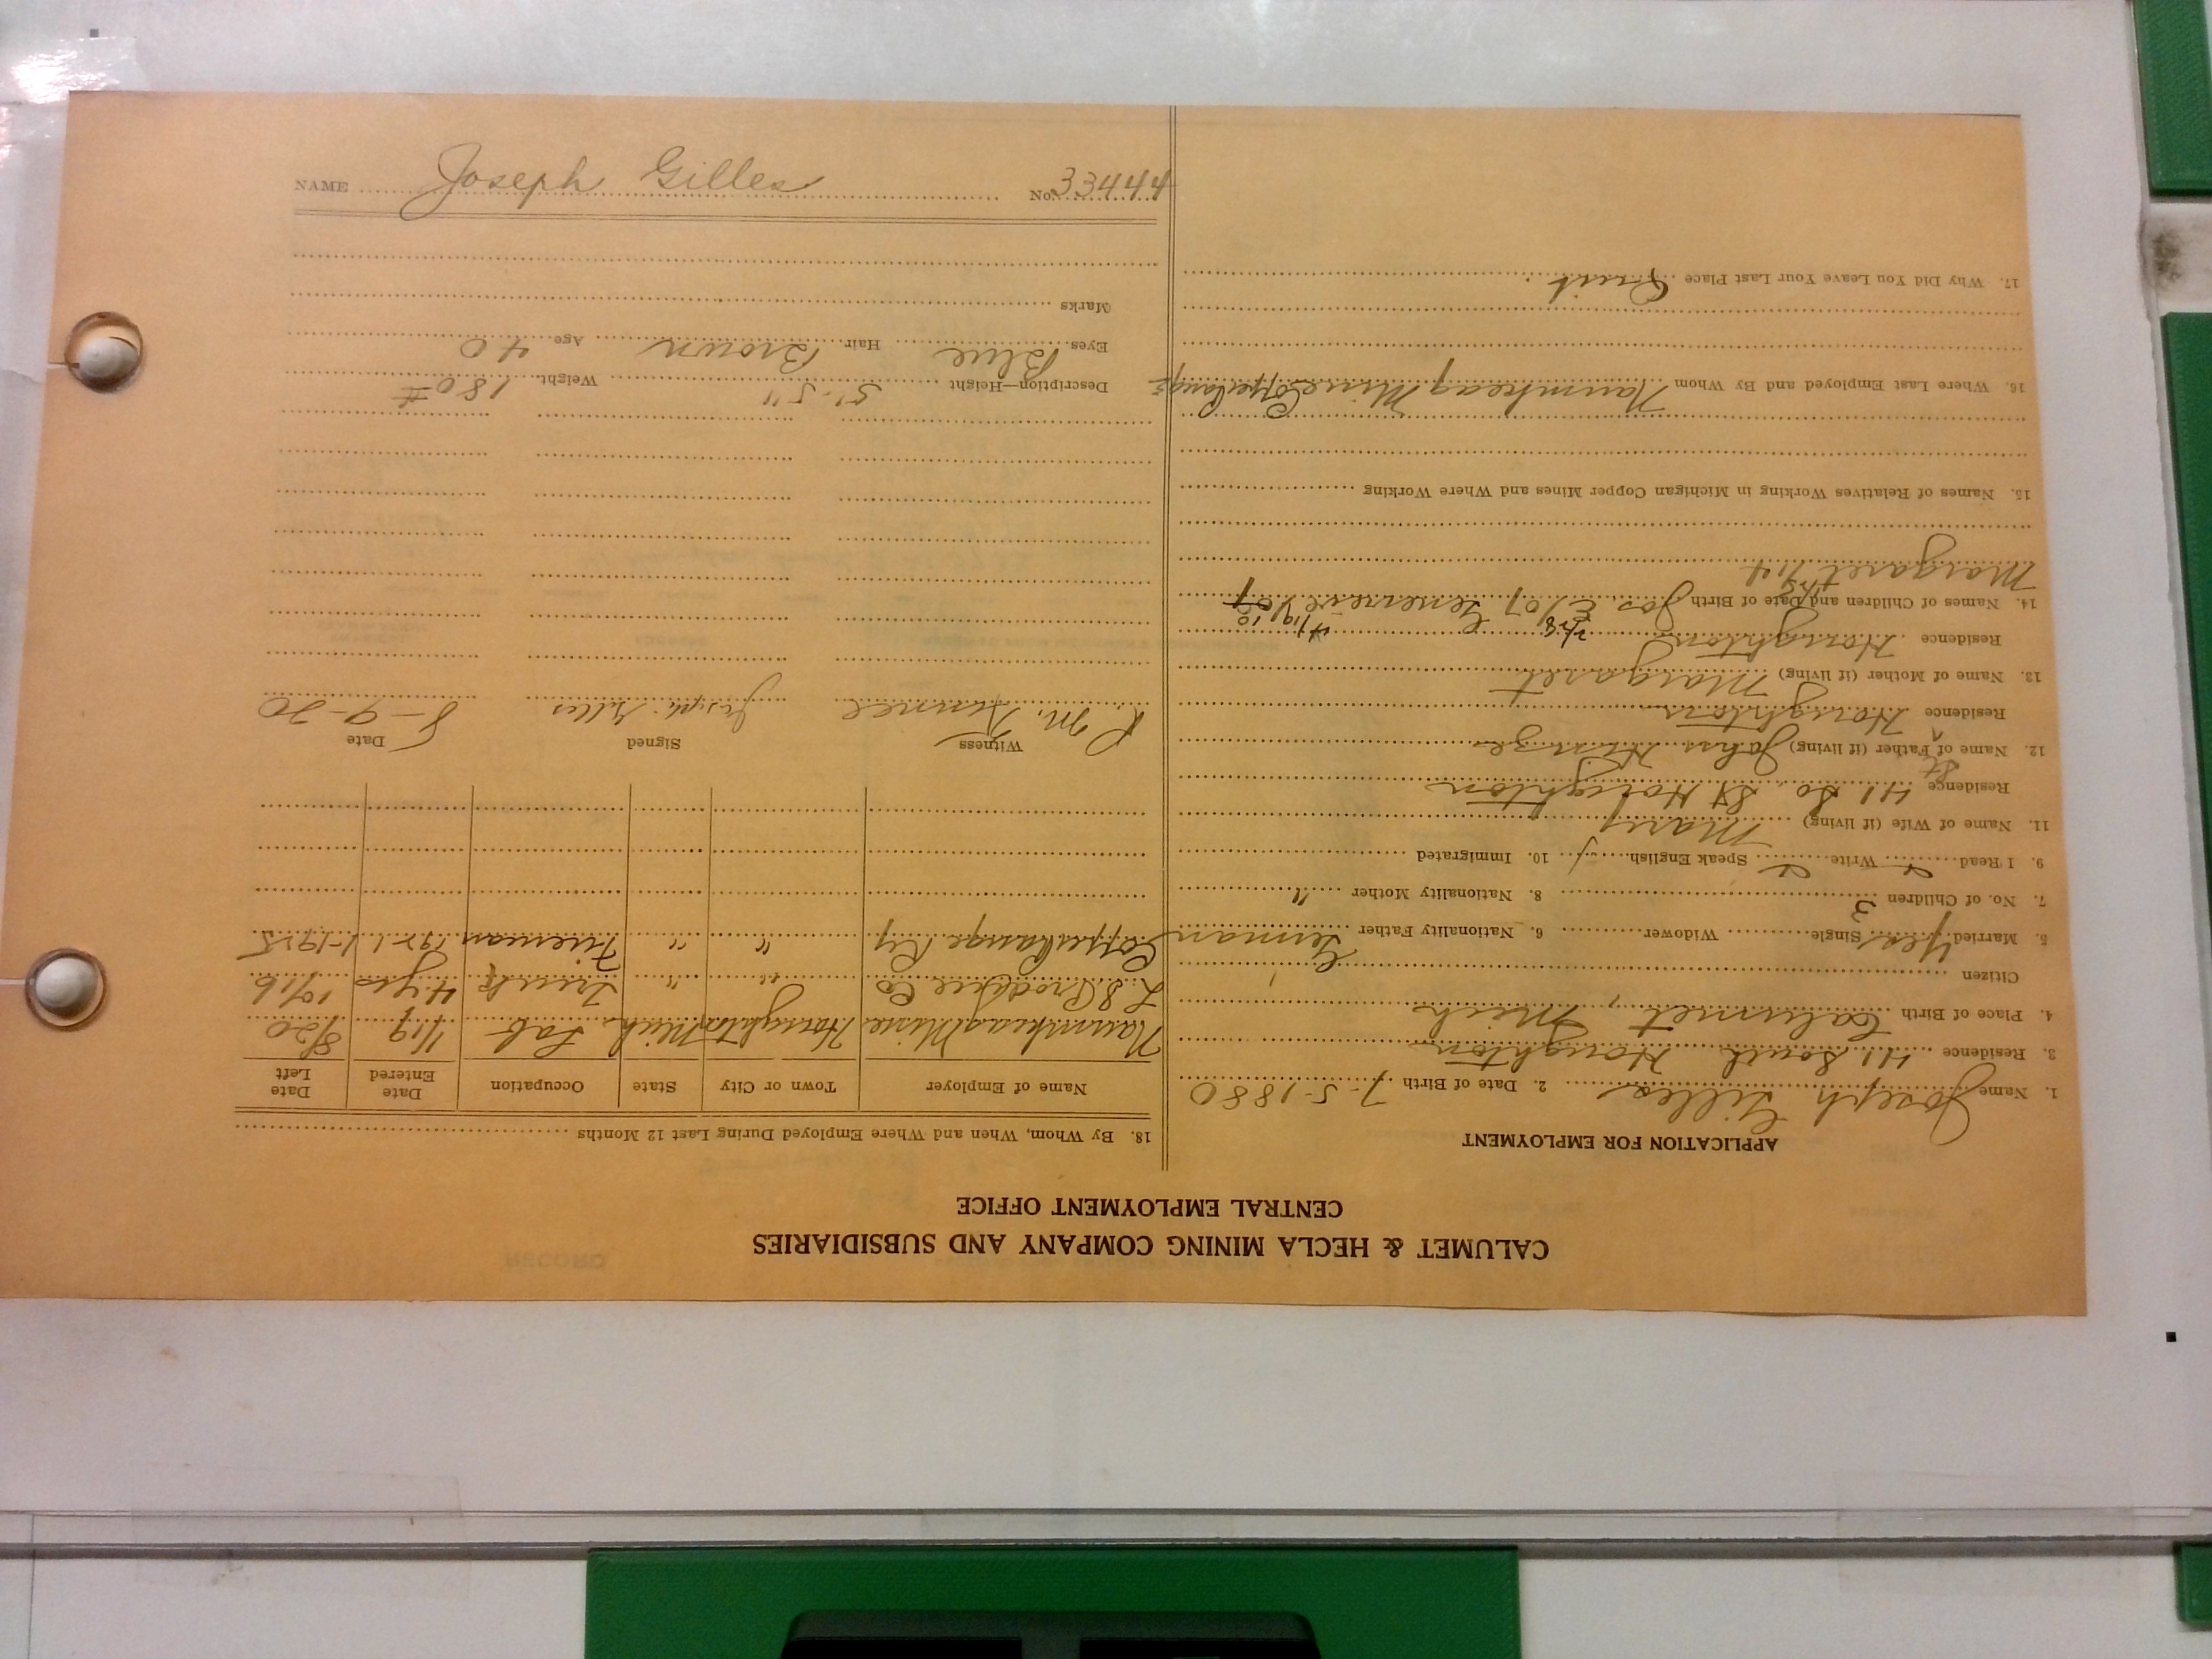 CALUMET & HECLA MINING COMPANY AND SUBSIDIARIES
CENTRAL EMPLOYMENT OFFICE
APPLICATION FOR EMPLOYMENT
1. Name Joseph Gilles 2. Date of Birth 7-5-1880
3. Residence 41 South Houghton
4. Place of Birth Calumet, Mich
Citizen
5. Married Yes Single Widower 6. Nationality Father German
7. No. of Children 3 8. Nationality Mother "
9. I Read Write Speak English 10. Immigrated
11. Name of Wife (if living) Mary
Residence 41 So. St Houghton
12. Name of Father (if living) John
Residence Houghton
13. Name of Mother (if living) Margaret
Residence Houghton
14. Names of Children and Date of Birth Jos. E/07 Genevieve
Margaret 1/14
15. Names of Relatives Working in Michigan Copper Mines and Where Working
16. Where Last Employed and By Whom Naumkeag Mine Copperange
17. Why Did You Leave Your Last Place Quit
18. By Whom, When and Where Employed During Last 12 Months
Name of Employer Town or City State Occupation Date Entered Date Left
Naumkeag Mine Houghton Mich Lab 1/19 8/20
L.S. Produce Co " " 4 yrs 10/16
Copperange Ry " " Fireman
Witness Signed Date
R. M. Joseph Gilles 8-9-20
Description—Height 5'-5" Weight 180#
Eyes Blue Hair Brown Age 40
Marks
NAME Joseph Gilles No. 33444
RECORD